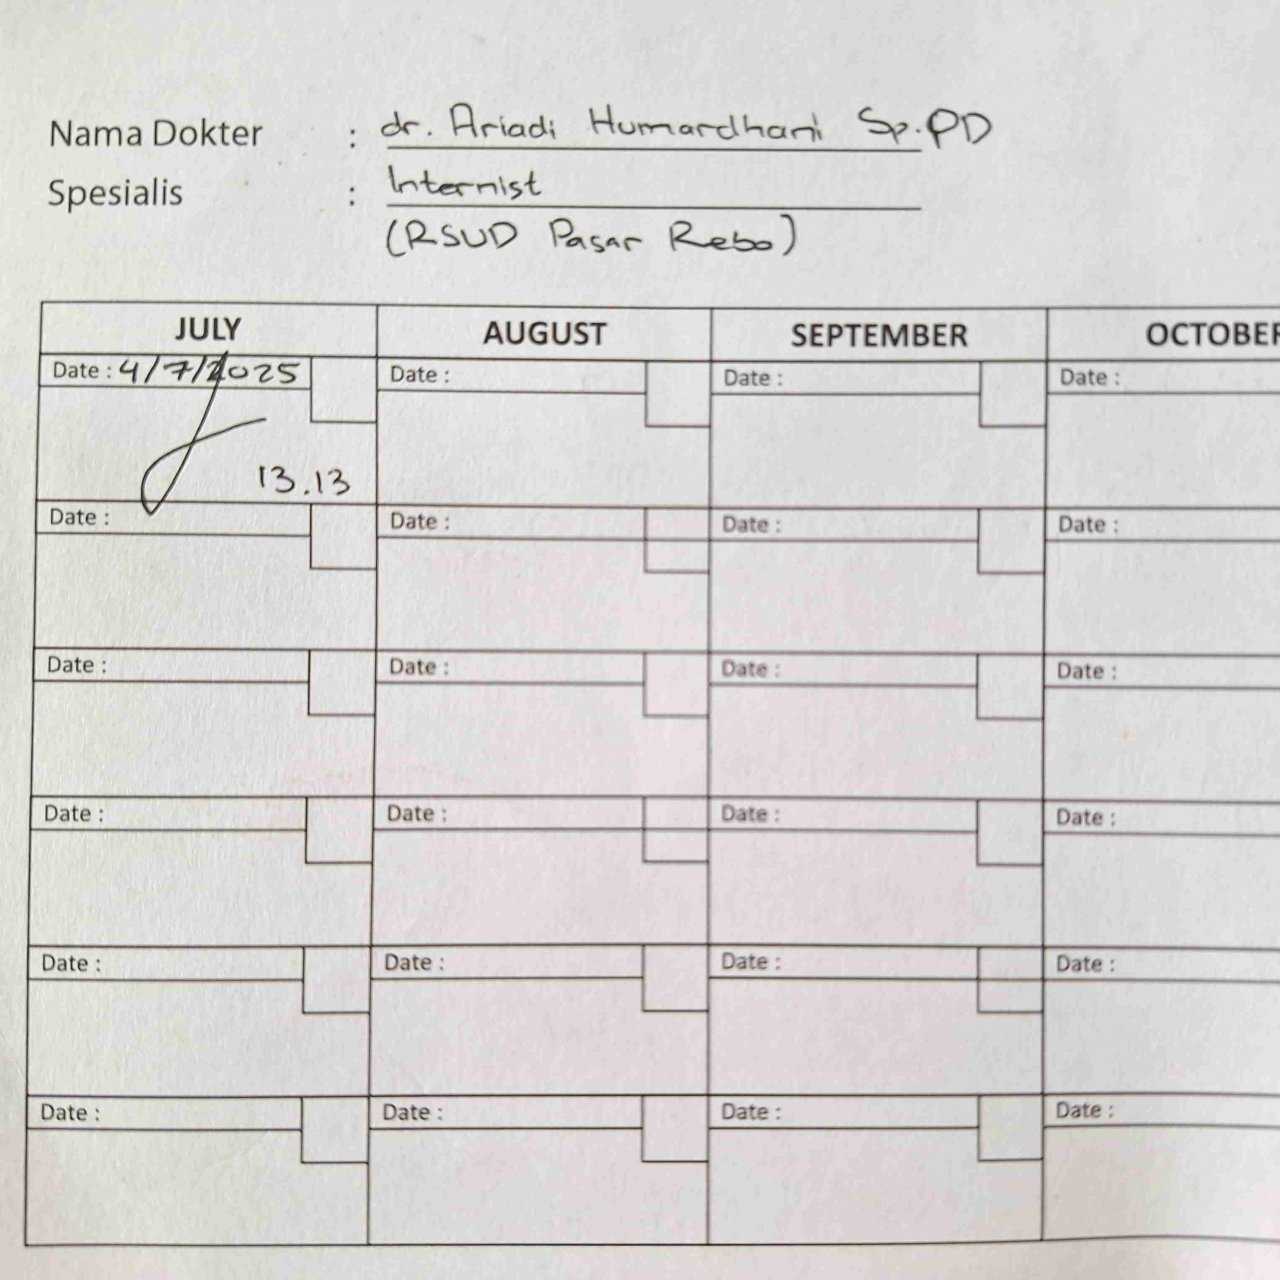 Nama Dokter : dr. Ariadi Humardhani Sp.PD
Spesialis : Internist
(RSUD Pasar Rebo)
JULY AUGUST SEPTEMBER OCTOBER
Date : 4/7/2025 Date : Date : Date :
13.13
Date : Date : Date : Date :
Date : Date : Date : Date :
Date : Date : Date : Date :
Date : Date : Date : Date :
Date : Date : Date : Date :